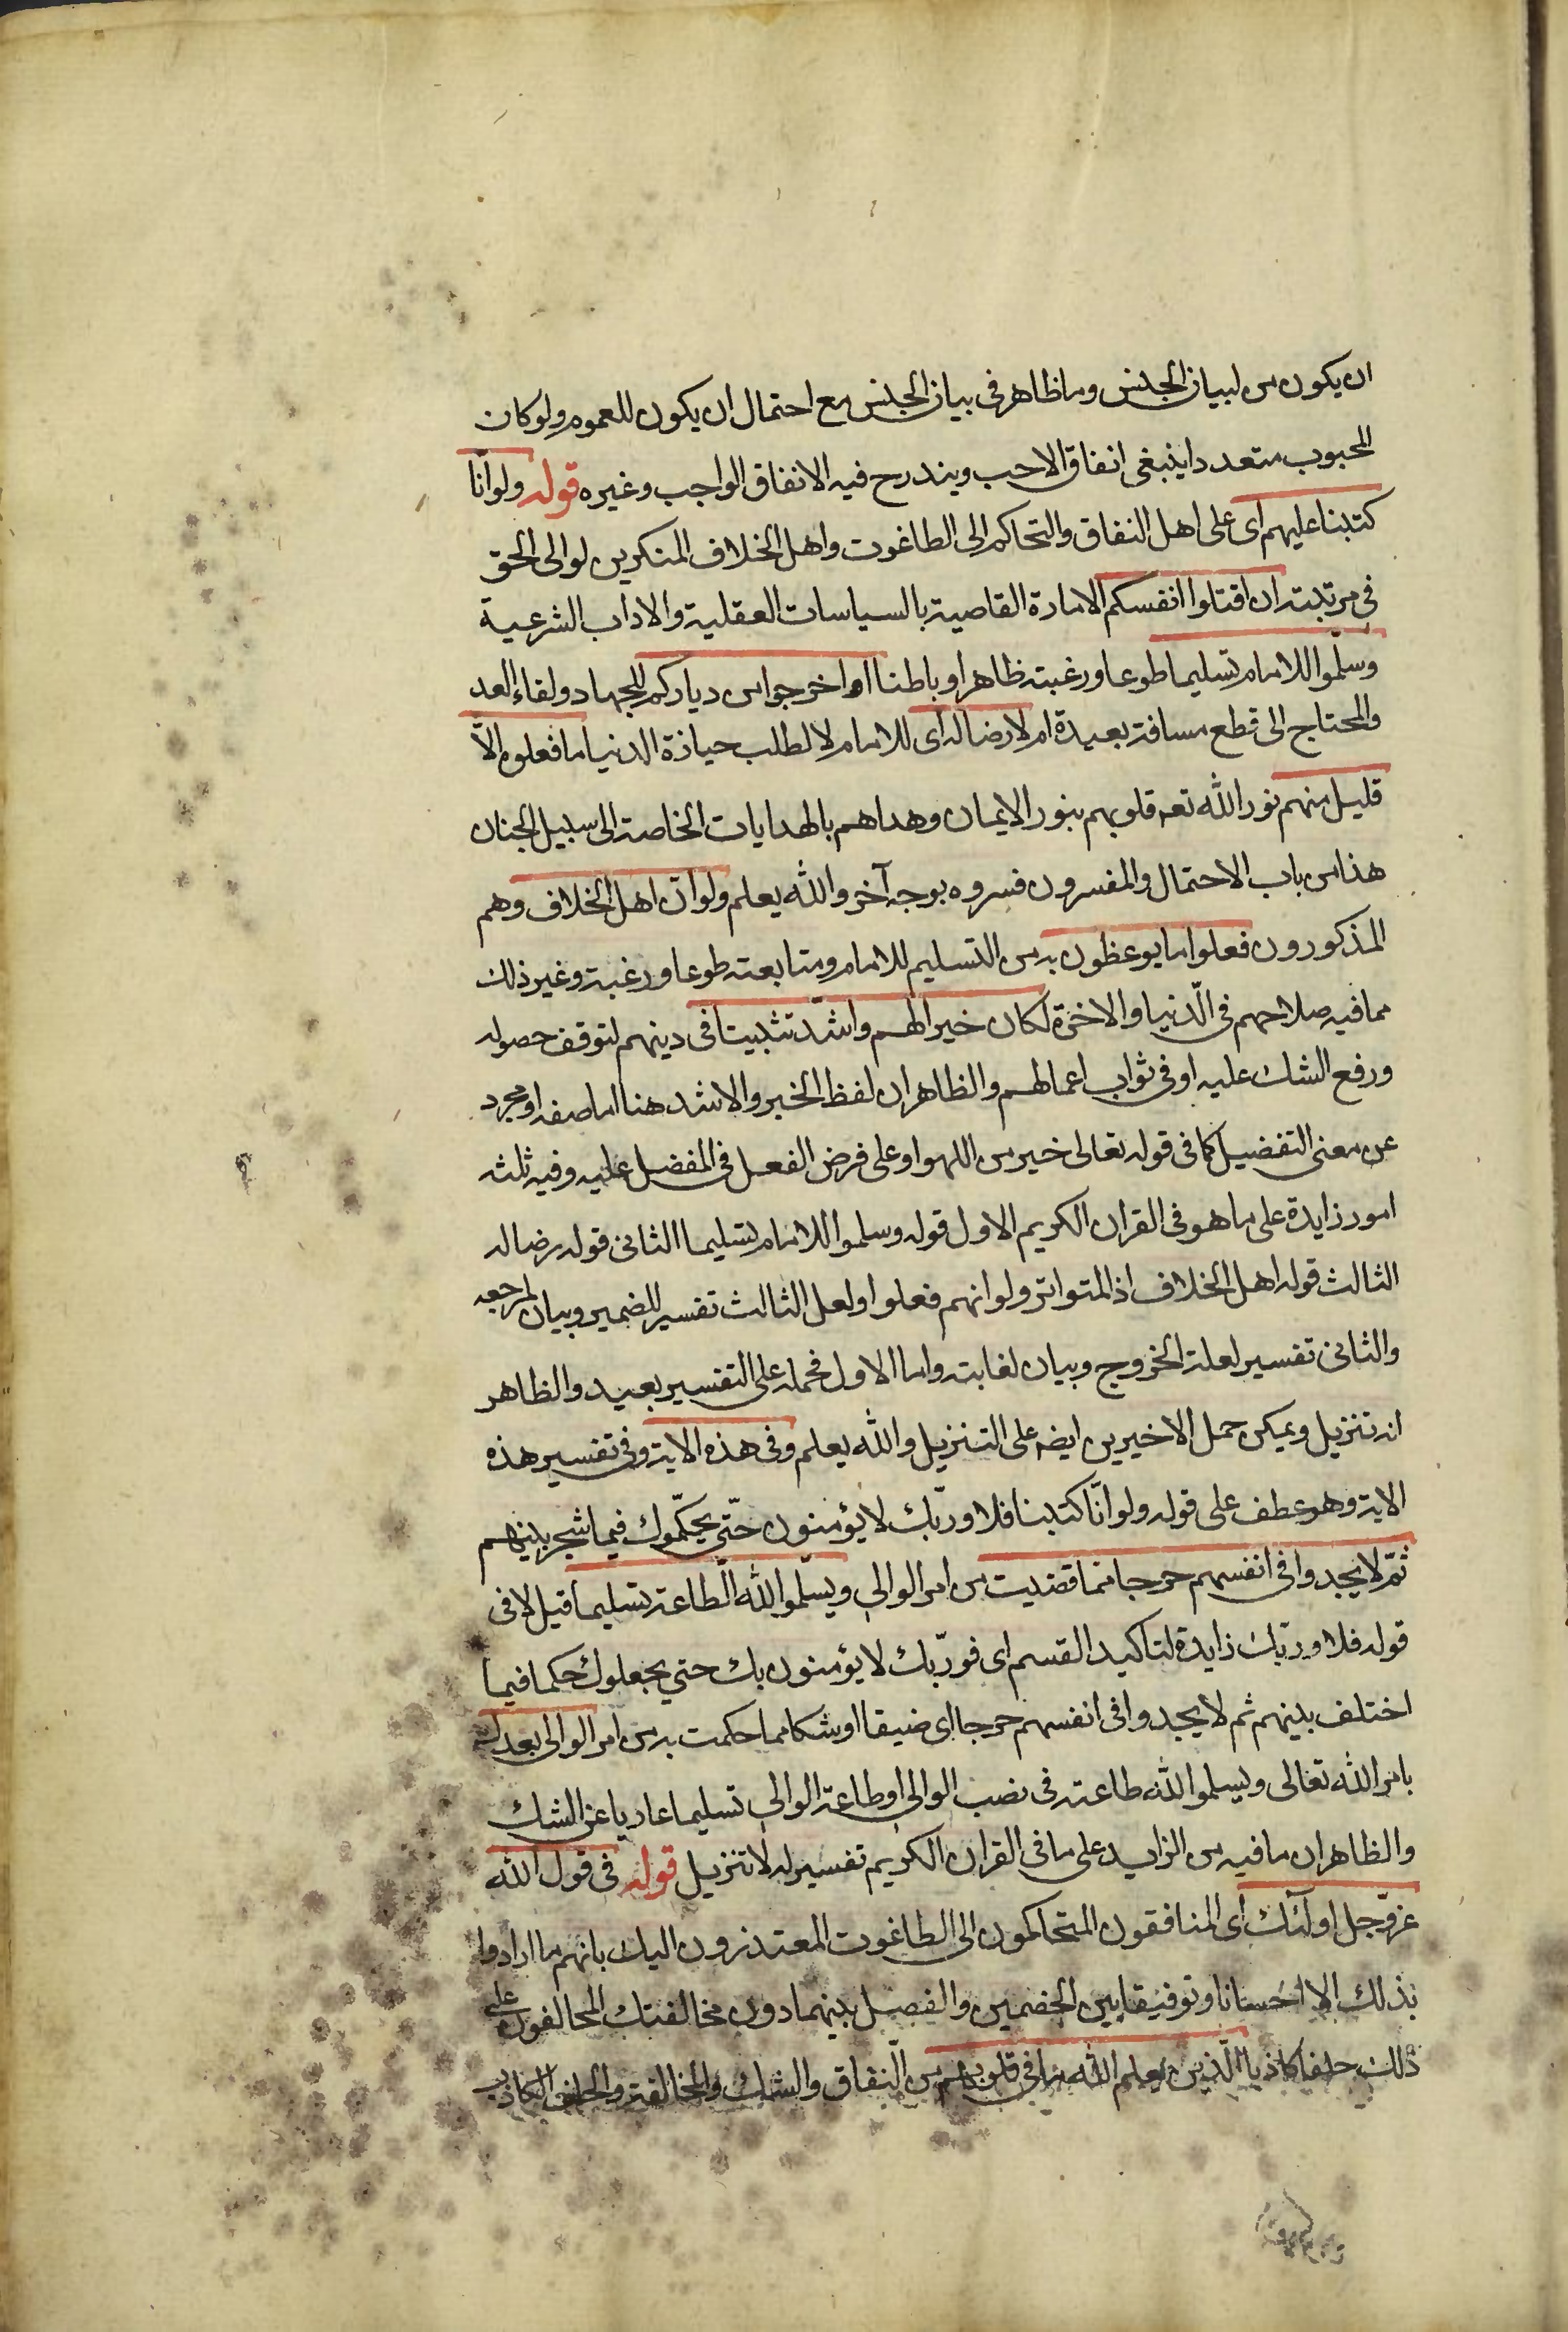 ان يكون من لبيان الجنس وما ظاهر في بيان الجنس مع احتمال ان يكون للعموم ولو كان
المحبوب متعددا ينبغى انفاق الاحب ويندرج فيه الانفاق الواجب وغيره قوله ولو انّا
كتبنا عليهم اى على اهل النفاق والتحاكم الى الطاغوت واهل الخلاف المنكرين لوالى الحق
في مرتبته ان اقتلوا انفسكم الامارة القاصية بالسياسات العقلية والاداب الشرعية
وسلّموا للامام تسليما طوعا ورغبته ظاهرا وباطنا او اخرجوا من دياركم للجهاد ولقاء العد
والمحتاج الى قطع مسافة بعيدة ام لا رضا له اى للامام لا لطلب حيازة الدنيا ما فعلوه الّا
قليل منهم نور الله تعه قلوبهم بنور الايمان وهداهم بالهدايات الخاصة الى سبيل الجنان
هذا من باب الاحتمال والمفسرون فسروه بوجه آخر والله يعلم ولو انّ اهل الخلاف وهم
المذكورون فعلوا ما يوعظون به من التسليم للامام ومتابعته طوعا ورغبة وغير ذلك
مما فيه صلاحهم في الدّنيا والاخرة لكان خيرا لهم واشدّ تثبيتا في دينهم لتوقف حصوله
ورفع الشك عليه او في ثواب اعمالهم والظاهر ان لفظ الخير والاشد هنا اما صفه او مجرد
عن معنى التفضيل كما في قوله تعالى خير من اللهو او على فرض الفعل في المفضل عليه وفيه ثلثه
امور زايدة على ما هو في القران الكريم الاول قوله وسلموا للامام تسليما الثانى قوله رضا له
الثالث قوله اهل الخلاف اذ المتواتر ولو انهم فعلوا ولعل الثالث تفسير للضمير وبيان لمرجعه
والثانى تفسير لعلة الخروج وبيان لغايته واما الاول فحمله على التفسير بعيد والظاهر
انه تنزيل ويمكن حمل الاخيرين ايضه على التنزيل والله يعلم وفي هذه الاية وفي تفسير هذه
الاية وهو عطف على قوله ولو انّا كتبنا فلا وربّك لا يؤمنون حتّى يحكّموك فيما شجر بينهم
ثمّ لا يجدوا في انفسهم حرجا ممّا قضيت من امر الوالى ويسلّموا لله الطّاعة تسليما قيل لا في
قوله فلا وربّك زايدة لتاكيد القسم اى فوربّك لا يؤمنون بك حتي يجعلوك حكما فيما
اختلف بينهم ثم لا يجدوا في انفسهم حرجا اى ضيقا او شكا مما حكمت به من امر الوالى بعدك
بامر الله تعالى ويسلموا لله طاعته في نصب الوالى او طاعة الوالى تسليما عاريا عن الشك
والظاهر ان ما فيه من الزايد على ما في القران الكريم تفسير له لا تنزيل قوله في قول الله
عزّ وجل اولئك اى المنافقون المتحاكمون الى الطاغوت المعتذرون اليك بانهم ما ارادوا
بذلك الا احسانا وتوفيقا بين الخصمين والفصل بينهما دون مخالفتك المحالفون على
ذلك حلفا كاذبا الّذين يعلم الله ما في قلوبهم من النّفاق والشك والمخالفة والحلف الكاذب